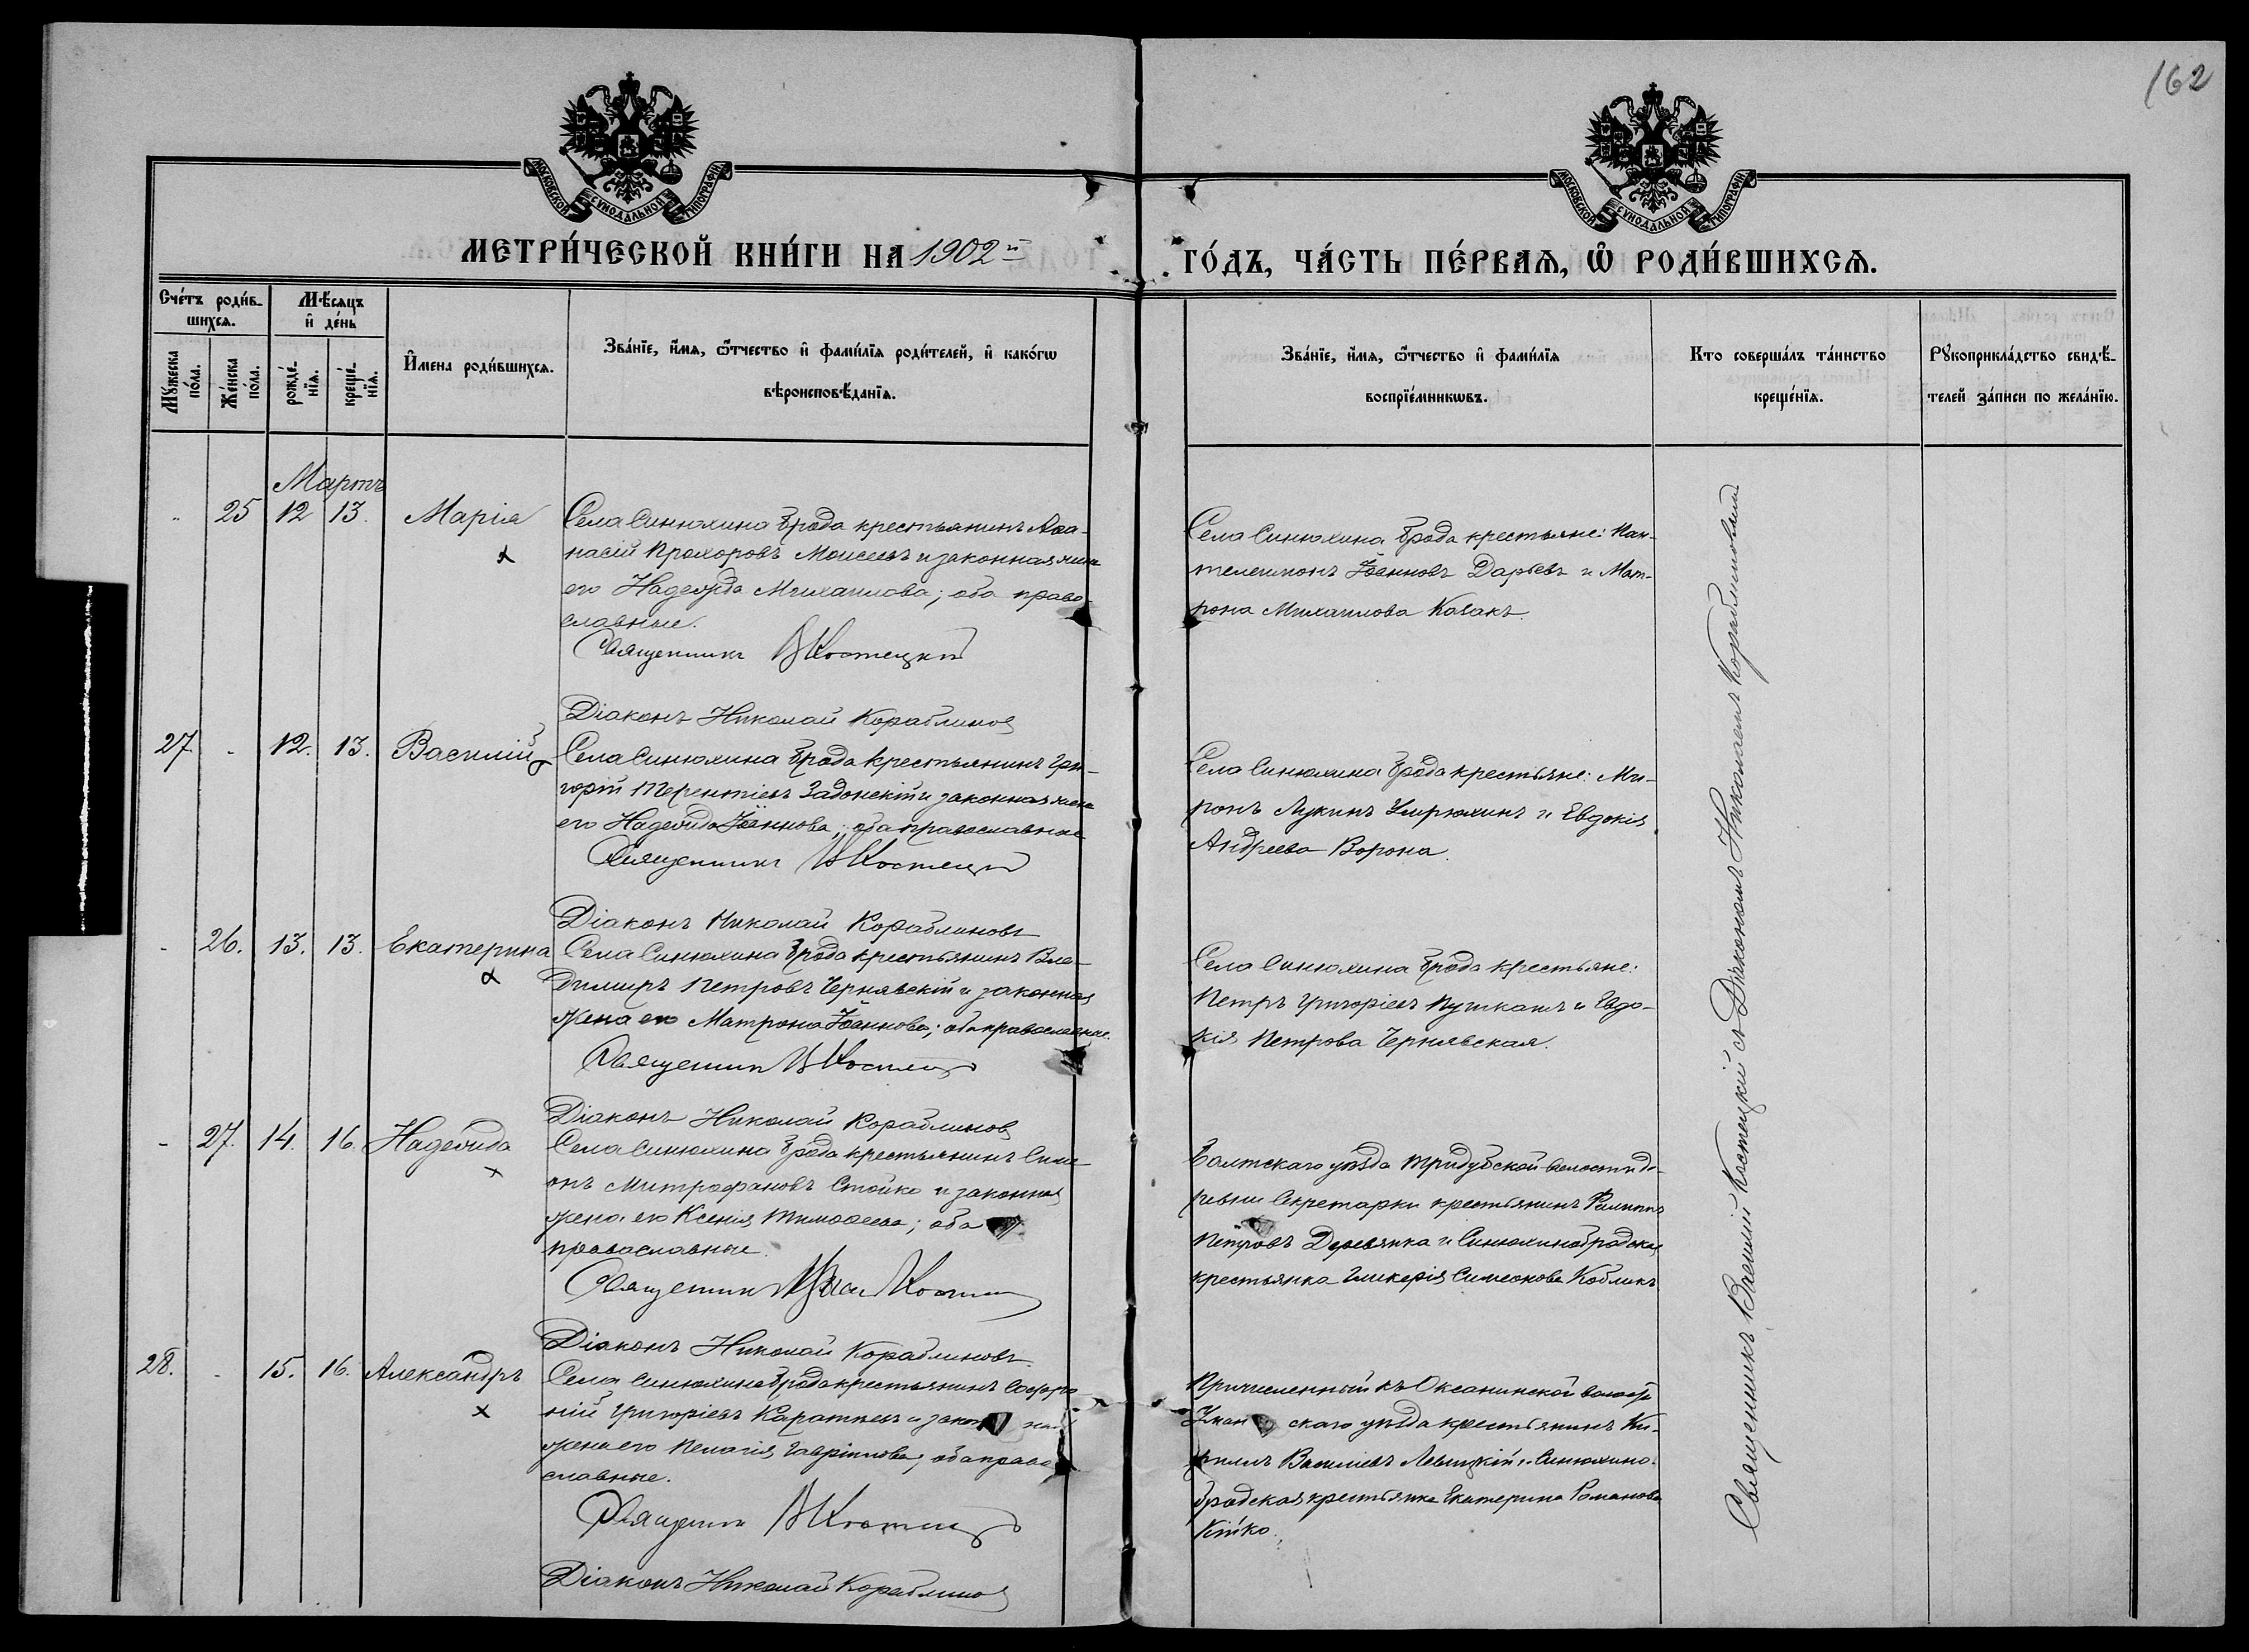 162
МОСКОВСКОЙ СѴНОДАЛЬНОЙ ТИПОГРАФІИ
МОСКОВСКОЙ СѴНОДАЛЬНОЙ ТИПОГРАФІИ
МЕТРИ́ЧЕСКОЙ КНИ́ГИ НА 1902й
ГО́ДЪ, ЧА́СТЬ ПЕ́РВАѦ, Ѡ҆ РОДИ́ВШИХСѦ.
Сче́тъ роди́в-
шихсѧ.
Мѣ́сѧцъ
и҆ де́нь
Мꙋ́жеска
по́ла.
Же́нска
по́ла.
рожде́-
нїѧ.
креще́-
нїѧ.
И҆мена роди́вшихсѧ.
Зва́нїе, и҆́мѧ, ѻ҆́тчество и҆ фами́лїѧ роди́телей, и҆ како́гѡ
вѣроисповѣ́данїѧ.
Зва́нїе, и҆́мѧ, ѻ҆́тчество и҆ фами́лїѧ
воспрїе́мникѡвъ.
Кто соверша́лъ та́инство
креще́нїѧ.
Рꙋкоприкла́дство свидѣ́-
телей за́писи по жела́нїю.
Мартъ
" 25 12 13. Марія
Села Синюхина Брода крестьянинъ Аѳа-
насій Прохоровъ Моисеевъ и законная жена
его Надежда Михаилова; оба право-
славные.
Священникъ В Костецкій
Діаконъ Николай Кораблиновъ
Села Синюхина Брода крестьяне: Пан-
телеимонъ Іоанновъ Дарьевъ и Мат-
рона Михаилова Козакъ.
27. - 12. 13. Василій
Села Синюхина Брода крестьянинъ Гри-
горій Терентіевъ Задонскій и законная жена
его Надежда Іоаннова; оба православные
Священникъ В Костецкій
Діаконъ Николай Кораблиновъ
Села Синюхина Брода крестьяне: Ми-
ронъ Лукинъ и Евдокія
Андреева Ворона.
- 26. 13. 13. Екатерина
Села Синюхина Брода крестьянинъ Вла-
димиръ Петровъ Чернявскій и законная
жена его Матрона Іоаннова; оба православные.
Священникъ В Костецкій
Діаконъ Николай Кораблиновъ
Села Синюхина Брода крестьяне:
Петръ Григоріевъ и Евдо-
кія Петрова Чернявская.
- 27. 14. 16. Надежда
Села Синюхина Брода крестьянинъ Симе-
онъ Митрофановъ Стойко и законная
жена его Ксенія Тимоѳеева; оба
православные.
Священникъ Костецкій
Діаконъ Николай Кораблиновъ
Балтскаго уѣзда Тридубской волости де-
ревни Секретарки крестьянинъ Филиппъ
Петровъ Деревянка и Синюхинобродская
крестьянка Гликерія Симеонова Кобликъ
28. - 15. 16. Александръ
Села Синюхина Брода крестьянинъ Софро-
ній Григоріевъ и законная
жена его Пелагія Гавріилова; оба право-
славные.
Священникъ В Костецкій
Діаконъ Николай Кораблиновъ
Причисленный къ Оксанинской волости
Уманскаго уѣзда крестьянинъ Ки-
риллъ Василіевъ Левицкій и Синюхино-
бродская крестьянка Екатерина Романова
Кійко.
Священникъ Василій Костецкій съ Діакономъ Николаемъ Кораблиновымъ